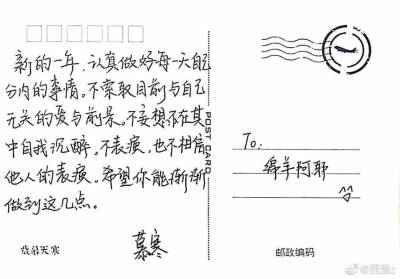 新的一年，认真做好每一天自己
分内的事情。不索取目前与自己
无关的爱与前景。不妄想不在其
中自我沉醉。不表演，也不相信
他人的表演。希望你能渐渐
做到这几点。
慕寒
POST CARD
To:
绵羊阿耶
邮政编码